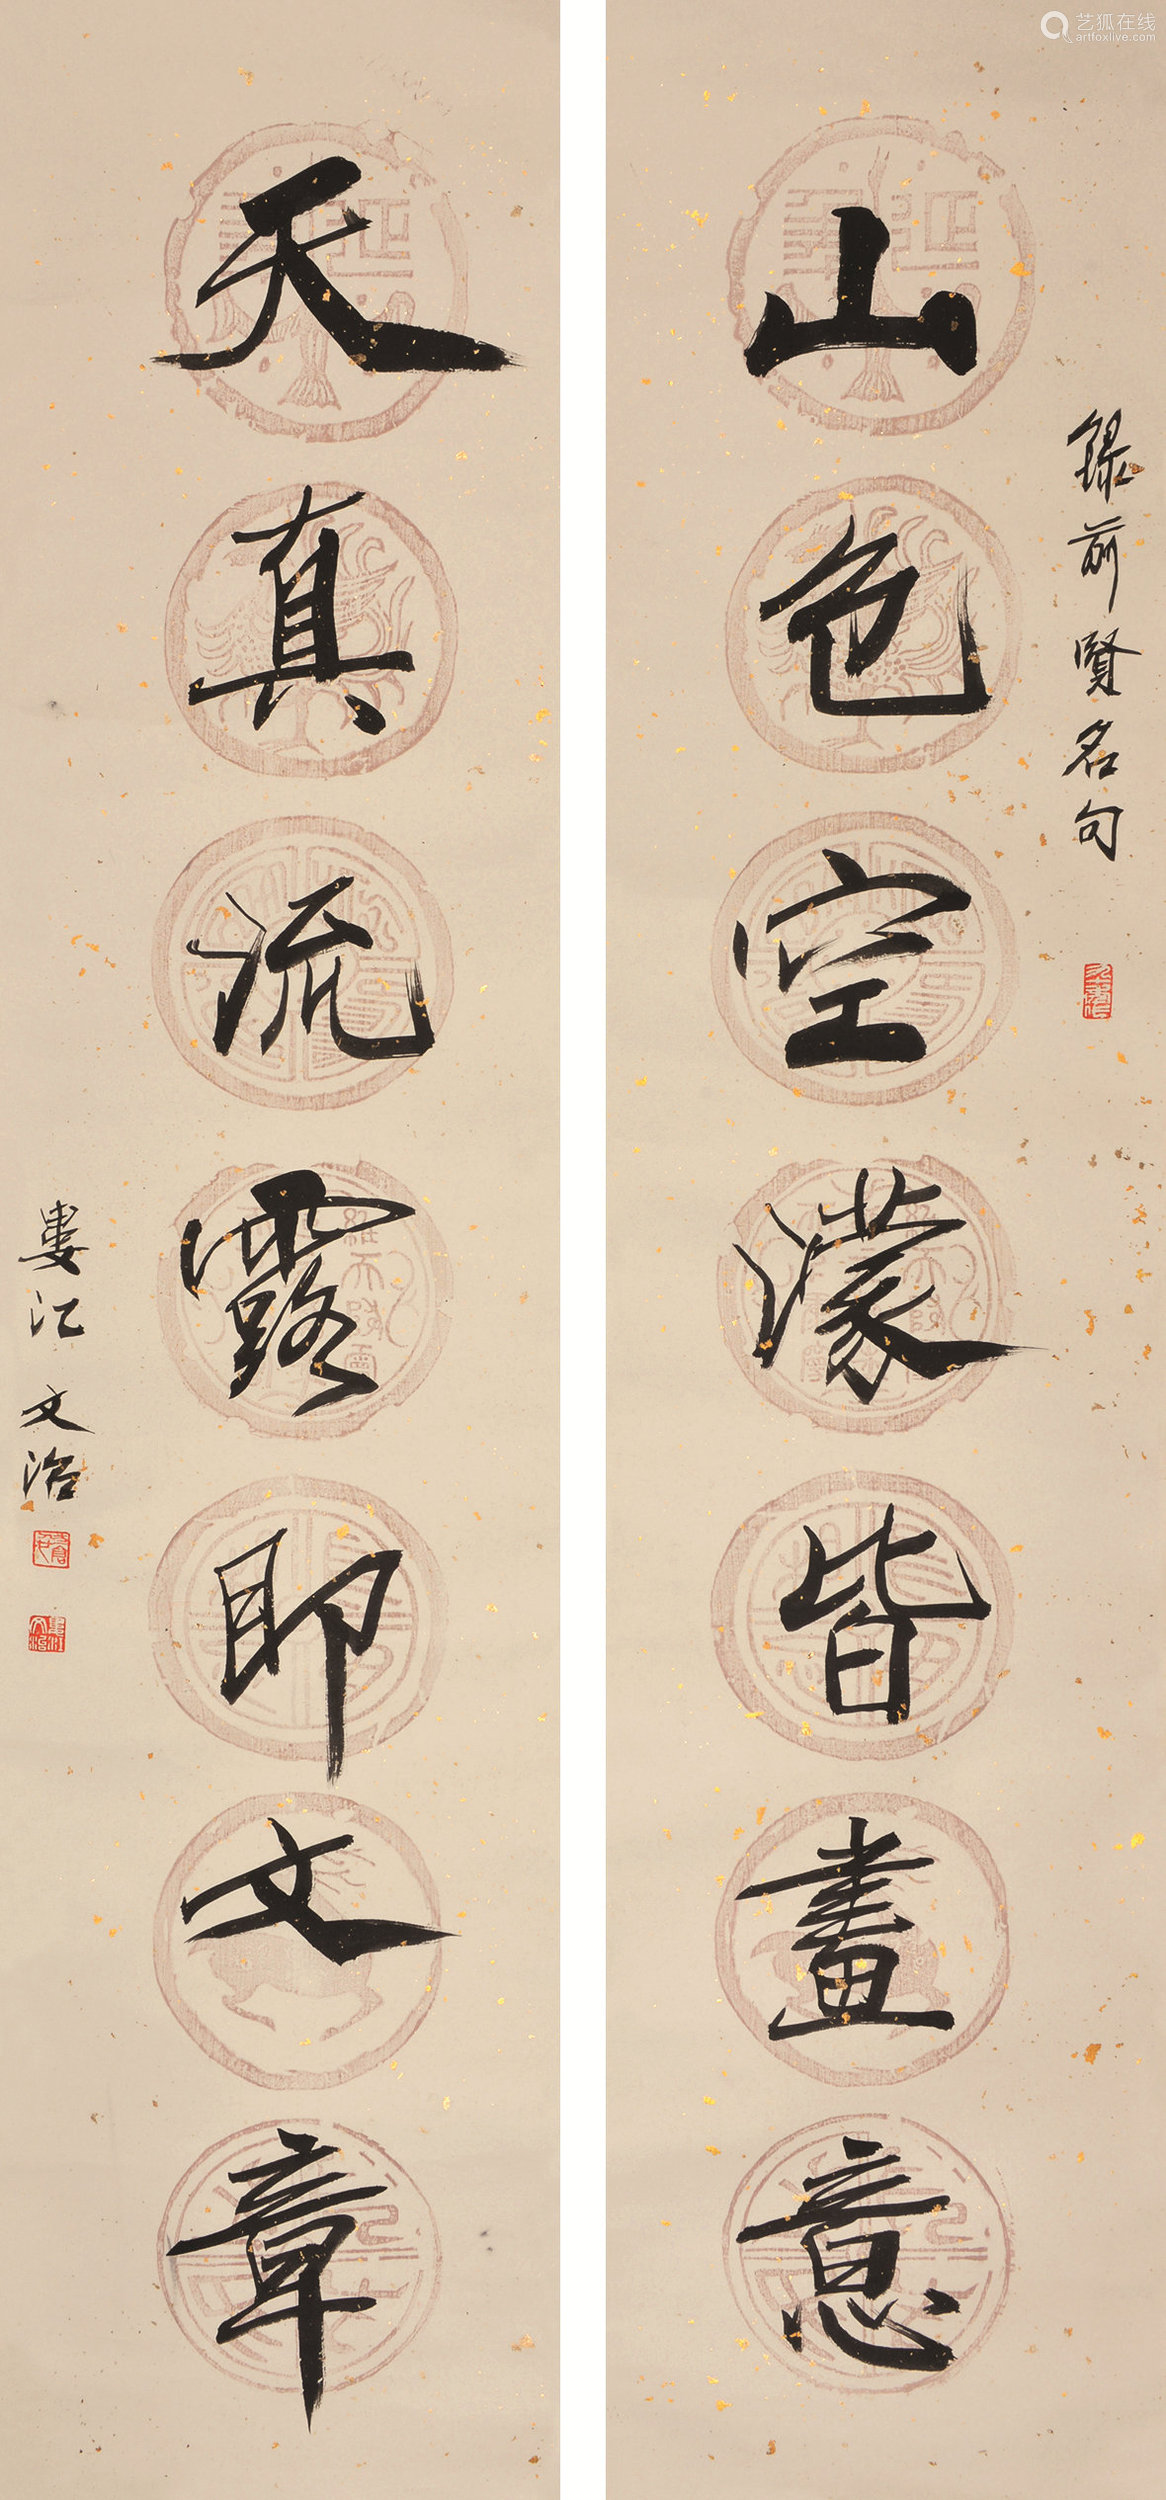 录前贤名句
山色空濛皆畫意
天真流露即文章
婁江文治
艺狐在线
artfoxlive.com